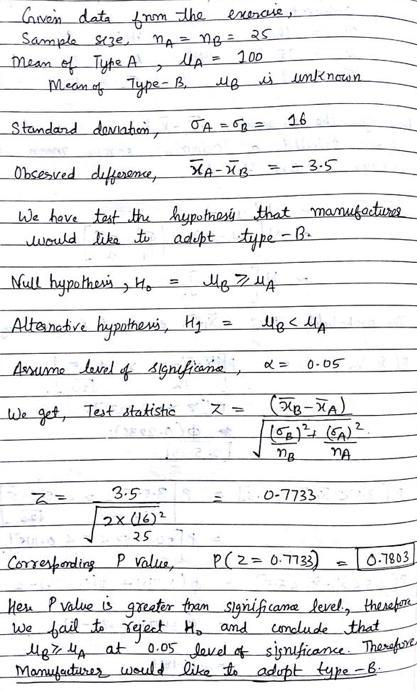 Given data from the exercise,
Sample size, nA = nB = 25
Mean of Type A , μA = 100
Mean of Type-B, μB is unknown
Standard deviation, σA = σB = 16
Observed difference, x̄A - x̄B = - 3.5
We have test the hypothesis that manufactures
would like to adopt type - B.
Null hypothesis, H₀ = μB ≥ μA
Alternative hypothesis, H₁ = μB < μA
Assume level of significance, α = 0.05
We get, Test statistic Z = (x̄B - x̄A) / √((σB)²/nB + (σA)²/nA)
Z = 3.5 / √(2×(16)²/25) = 0.7733
Corresponding P value, P(Z = 0.7733) = 0.7803
Here P value is greater than significance level, therefore
we fail to reject H₀ and conclude that
μB ≥ μA at 0.05 level of significance. Therefore
Manufacturer would like to adopt type - B.